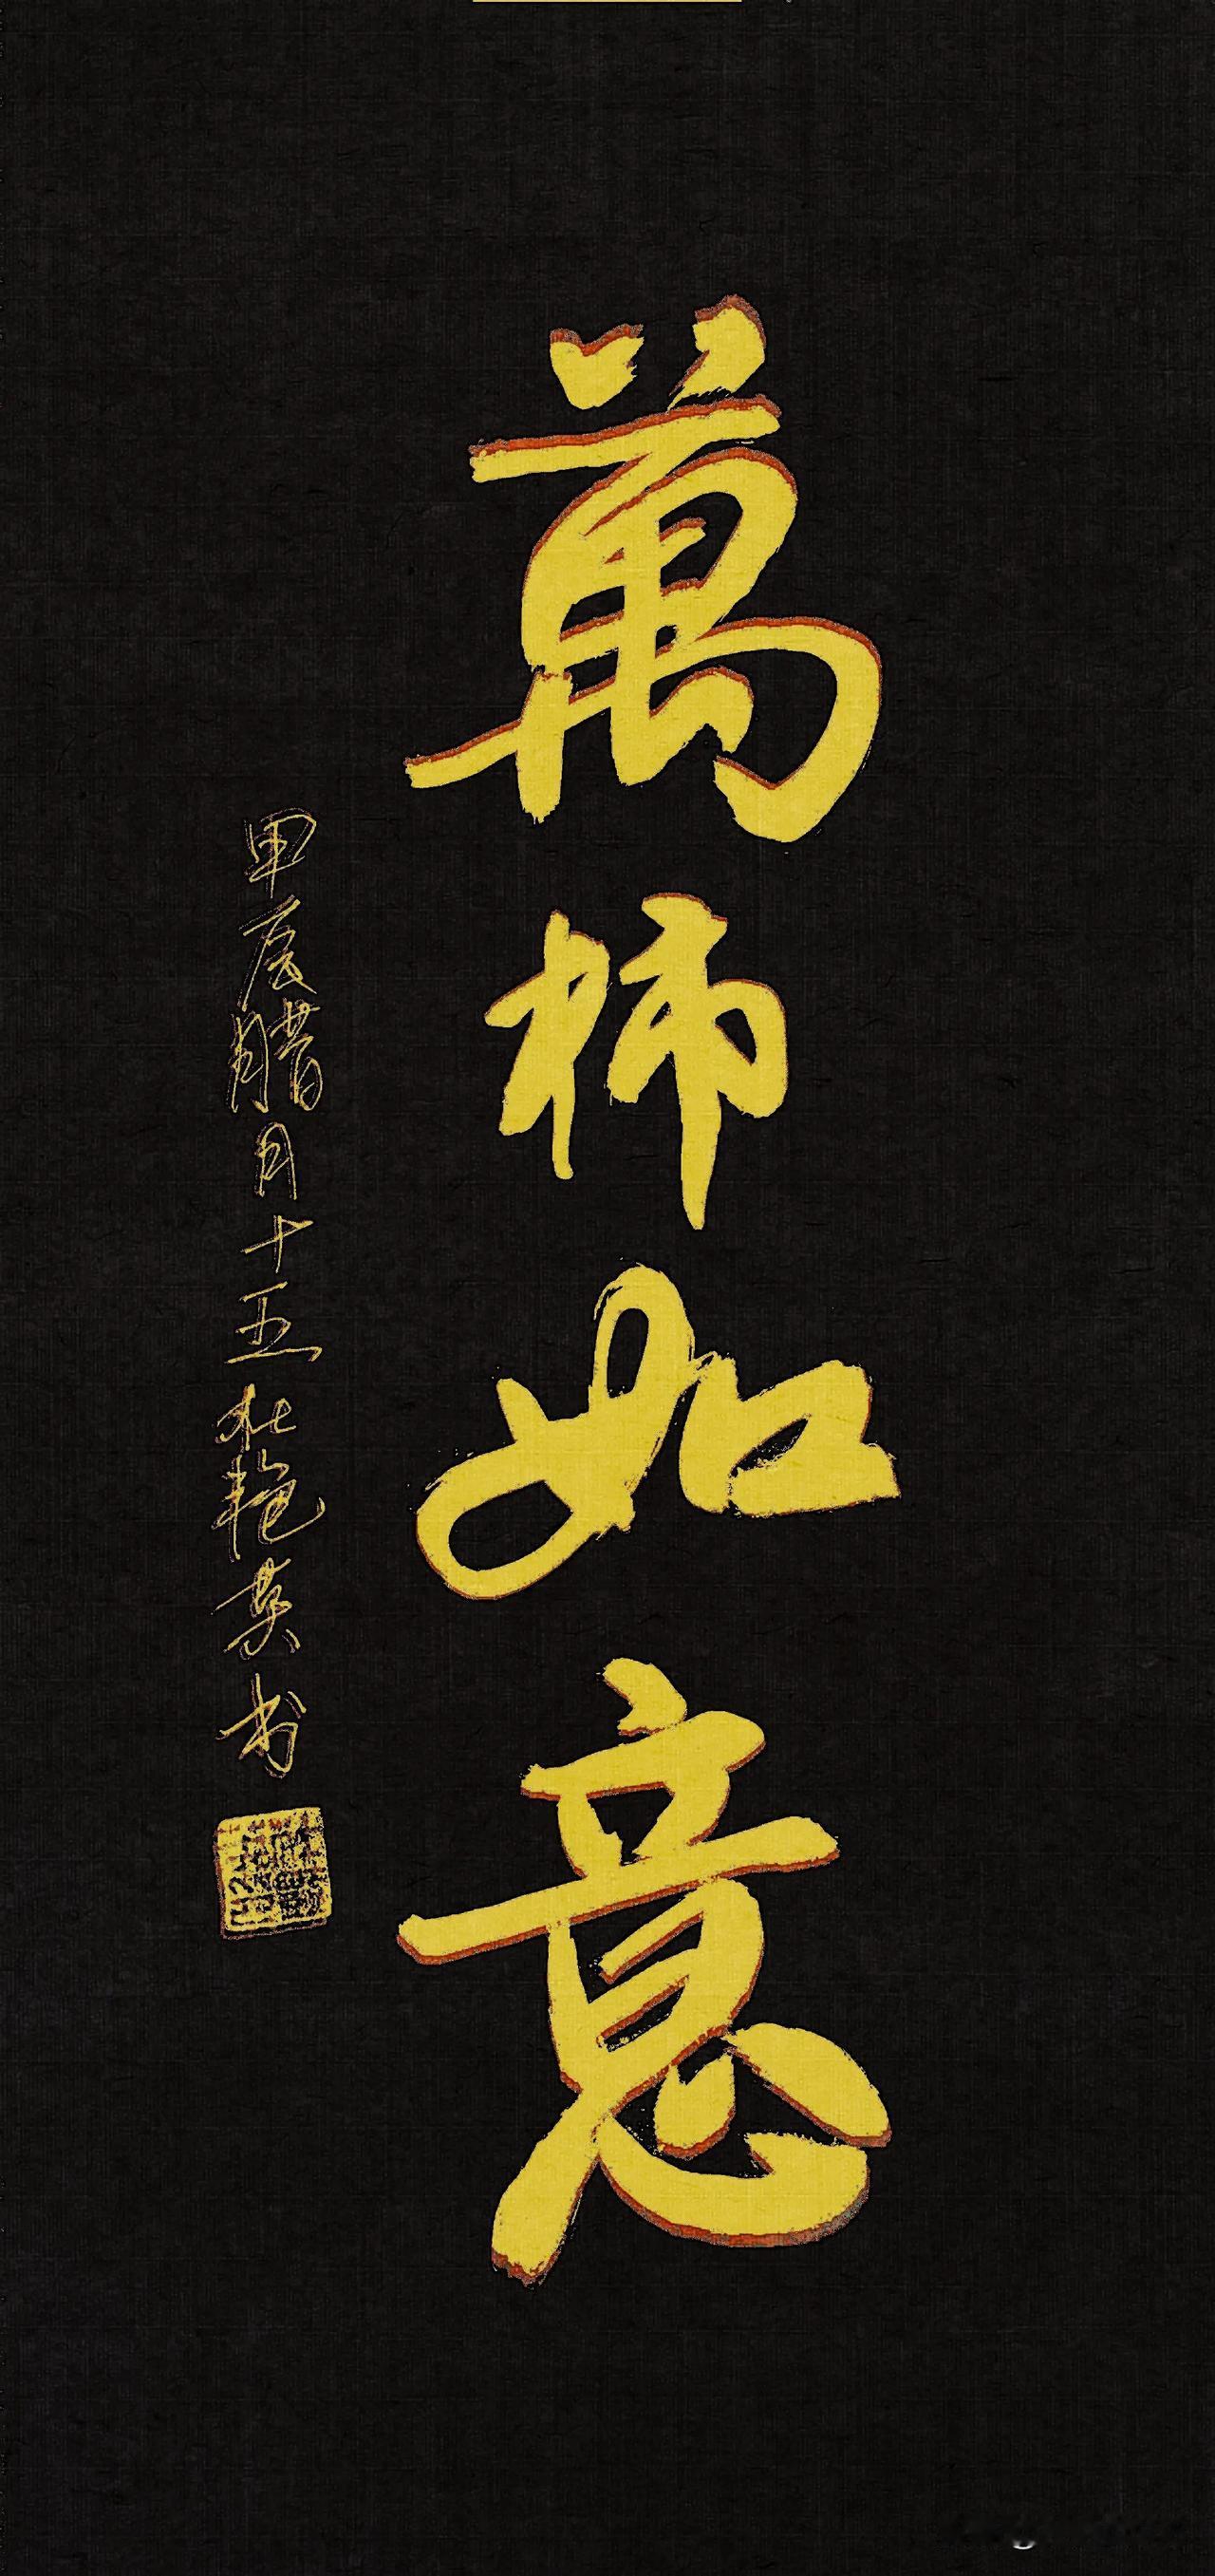 萬柿如意
甲辰腊月十五杜艳英书